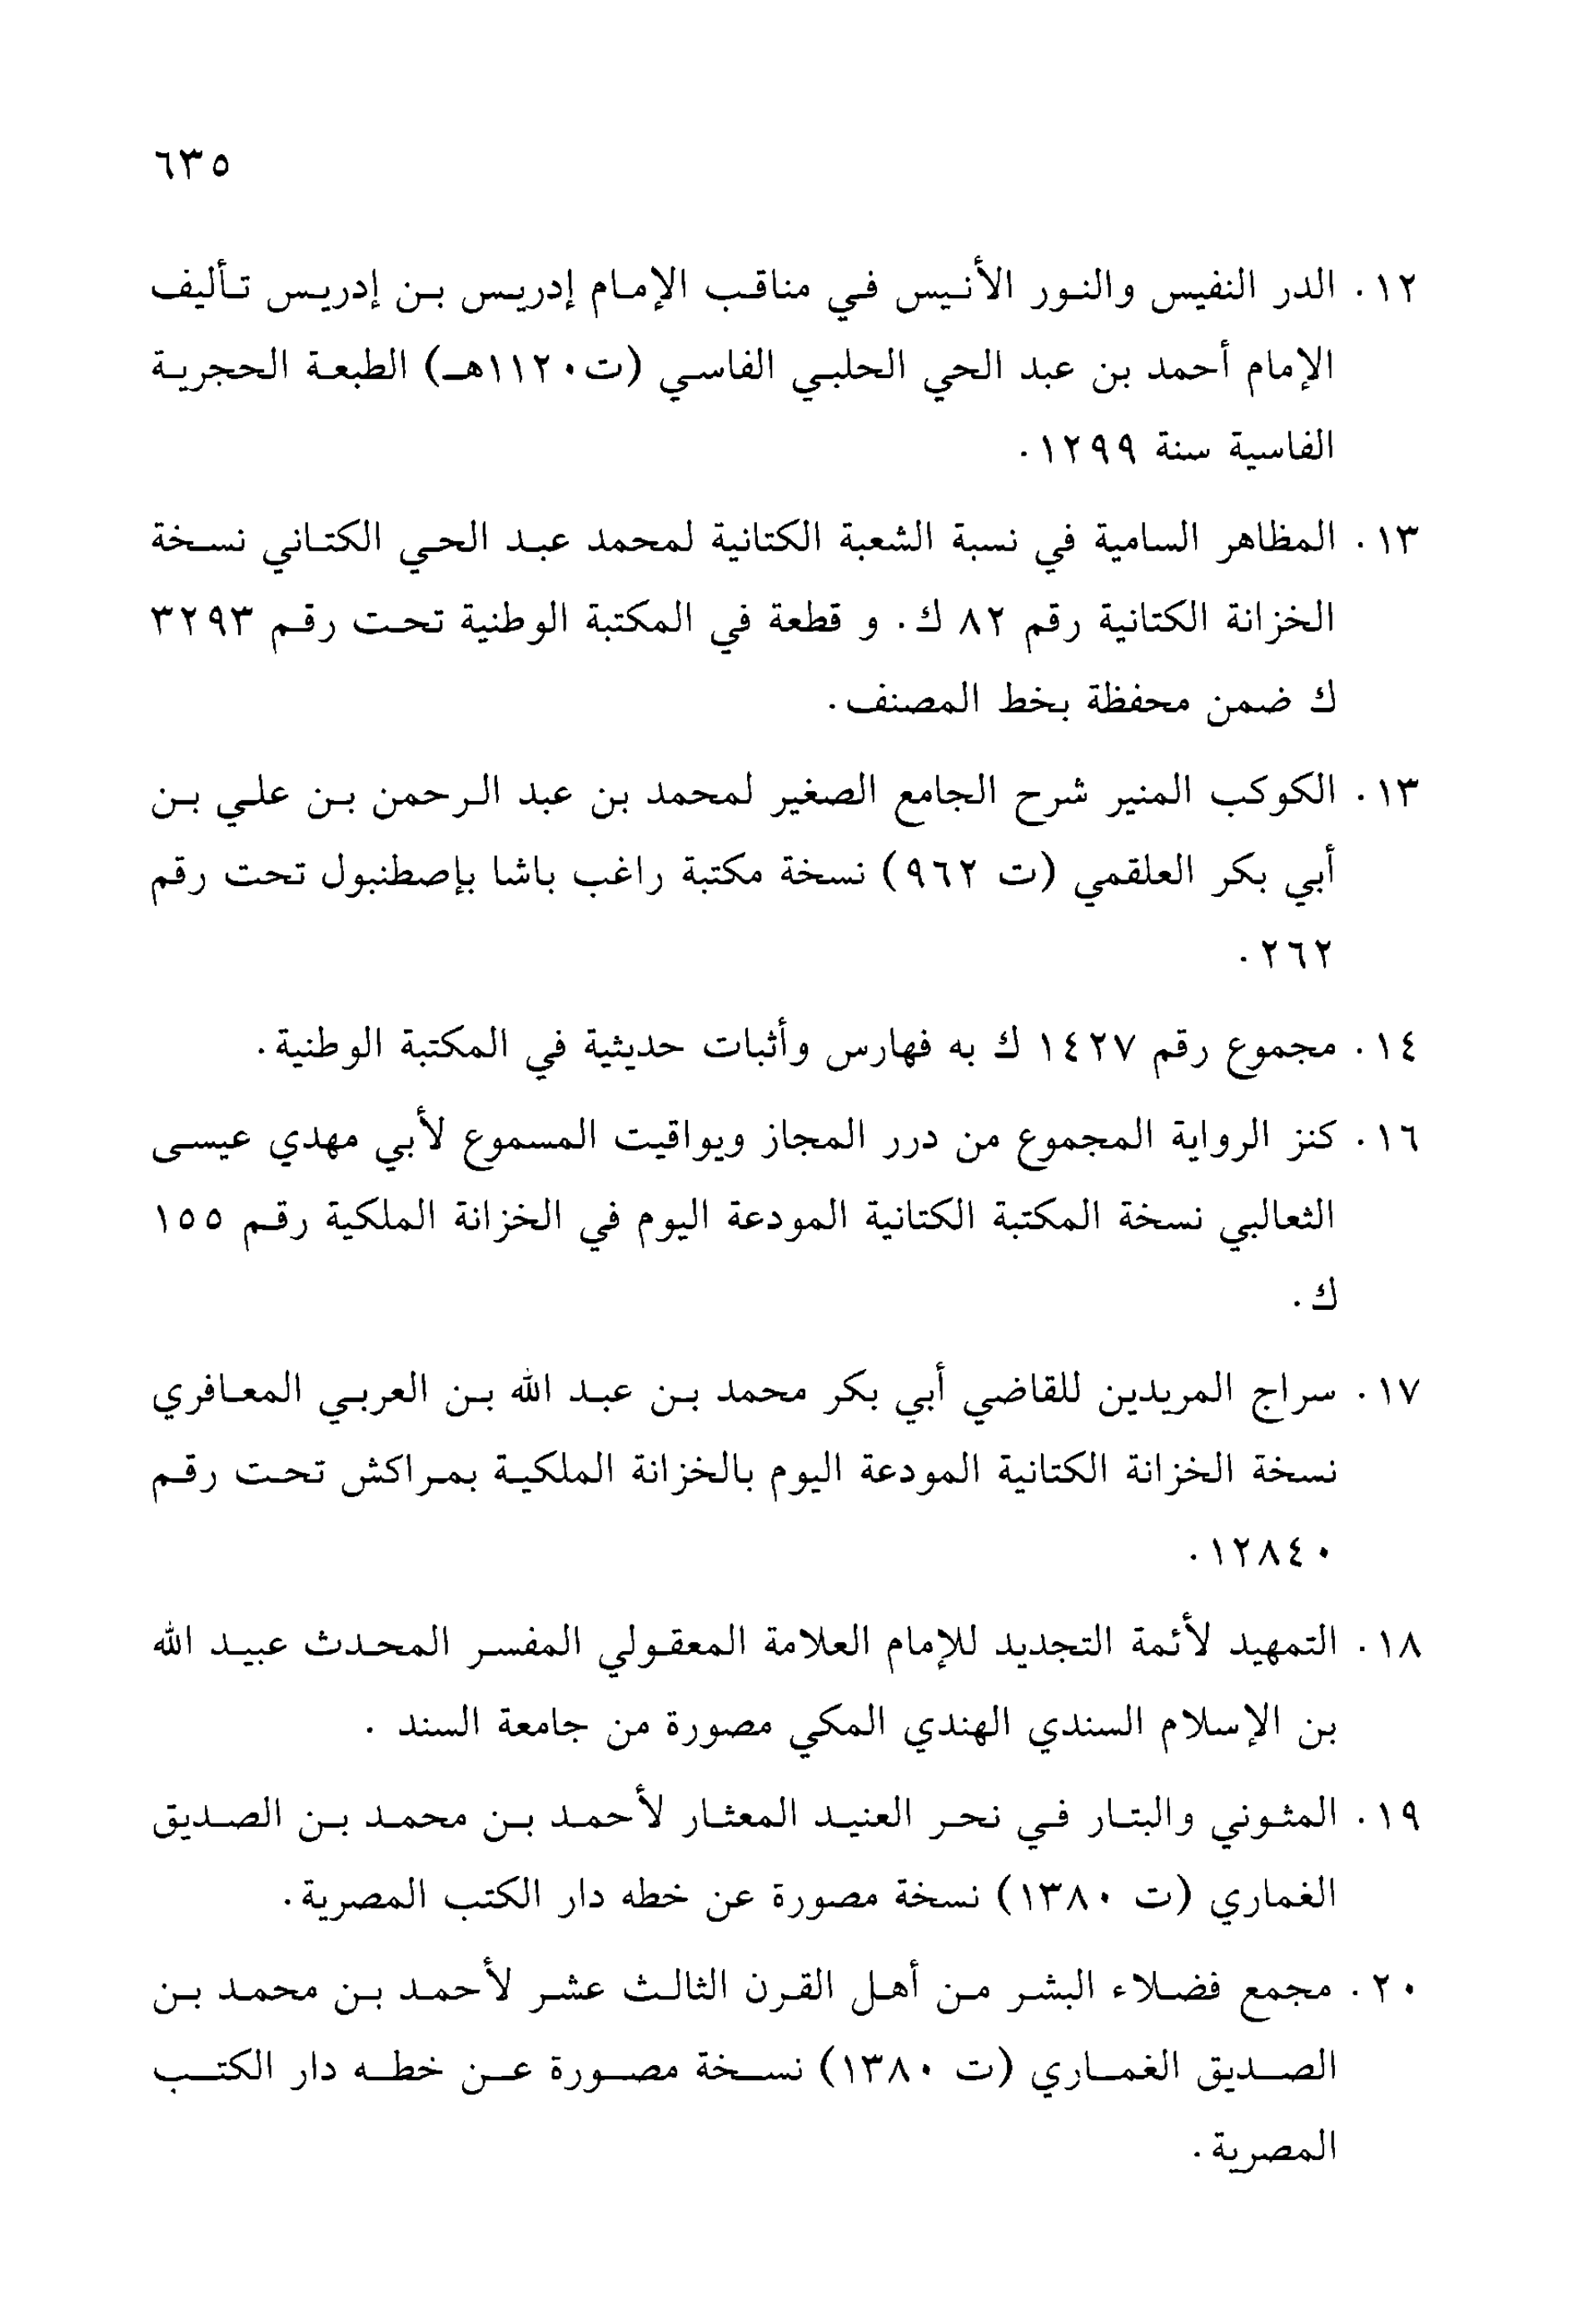 ٦٣٥
١٢. الدر النفيس والنور الأنيس في مناقب الإمام إدريس بن إدريس تأليف
الإمام أحمد بن عبد الحي الحلبي الفاسي (ت١١٢٠هـ) الطبعة الحجرية
الفاسية سنة ١٢٩٩.
١٣. المظاهر السامية في نسبة الشعبة الكتانية لمحمد عبد الحي الكتاني نسخة
الخزانة الكتانية رقم ٨٢ ك. و قطعة في المكتبة الوطنية تحت رقم ٣٢٩٣
ك ضمن محفظة بخط المصنف.
١٣. الكوكب المنير شرح الجامع الصغير لمحمد بن عبد الرحمن بن علي بن
أبي بكر العلقمي (ت ٩٦٢) نسخة مكتبة راغب باشا بإصطنبول تحت رقم
٢٦٢.
١٤. مجموع رقم ١٤٢٧ ك به فهارس وأثبات حديثية في المكتبة الوطنية.
١٦. كنز الرواية المجموع من درر المجاز ويواقيت المسموع لأبي مهدي عيسى
الثعالبي نسخة المكتبة الكتانية المودعة اليوم في الخزانة الملكية رقم ١٥٥
ك.
١٧. سراج المريدين للقاضي أبي بكر محمد بن عبد الله بن العربي المعافري
نسخة الخزانة الكتانية المودعة اليوم بالخزانة الملكية بمراكش تحت رقم
١٢٨٤٠.
١٨. التمهيد لأئمة التجديد للإمام العلامة المعقولي المفسر المحدث عبيد الله
بن الإسلام السندي الهندي المكي مصورة من جامعة السند .
١٩. المثوني والبتار في نحر العنيد المعثار لأحمد بن محمد بن الصديق
الغماري (ت ١٣٨٠) نسخة مصورة عن خطه دار الكتب المصرية.
٢٠. مجمع فضلاء البشر من أهل القرن الثالث عشر لأحمد بن محمد بن
الصديق الغماري (ت ١٣٨٠) نسخة مصورة عن خطه دار الكتب
المصرية.